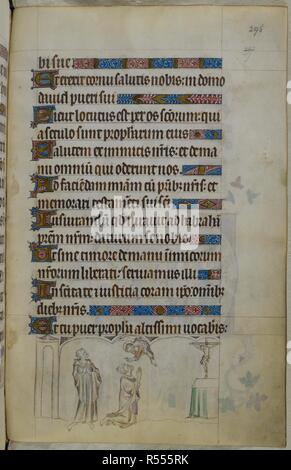 bi sue
Et erexit cornu salutis nobis: in domo
dauid pueri sui
Sicut locutus est per os scorum: qui
a seculo sunt prophetarum eius
Salutem ex inimicis nris: et de ma
nu omniu qui oderunt nos.
Ad faciendam miam cu prib: nris: et
memorari testamenti sui sci
Iusiurandu qd iurauit ad abraham
prem nrm: daturum se nobis
Ut sine timore de manu inimicorum
nrorum liberati: seruiamus illi
In scitate et iusticia coram ipo: omnib:
dieb: nris.
Et tu puer propha altissimi uocabis:
alamy
Image ID: R555RK
www.alamy.com